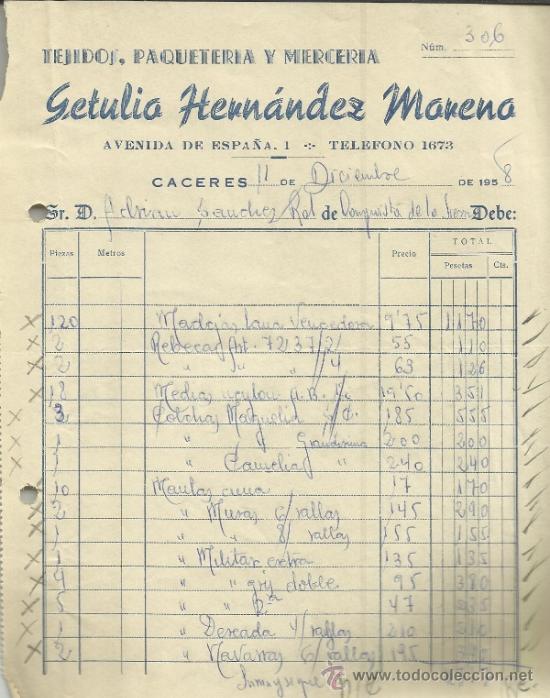 Núm. 306
TEJIDOS, PAQUETERIA Y MERCERIA
Getulio Hernández Moreno
AVENIDA DE ESPAÑA, 1 -:- TELEFONO 1673
CACERES 11 DE Diciembre DE 1958
Sr. D. Adrian Sanchez Rol de Conquista de la Sierra Debe:
Piezas Metros Precio TOTAL
Pesetas Cts.
120 Madejas lana Vencedora 9'75 1170
2 Rebecas Art. 7237/2 55 110
2 " " /4 63 126
18 Medias 19'50 351
3 Colchas 185 555
1 " 200 200
1 " Camelia " 240 240
10 Mantas cuna 17 170
2 " Muras 6/rallas 145 290
1 " " 8/rallas 155 155
1 " Militar extra 135 135
4 " " gris doble 95 380
5 " " 2ª 47 235
1 " Deseada 4/rallas 210 210
2 " Navarras 6/rallas 195 390
Suma y sigue
todocoleccion.net